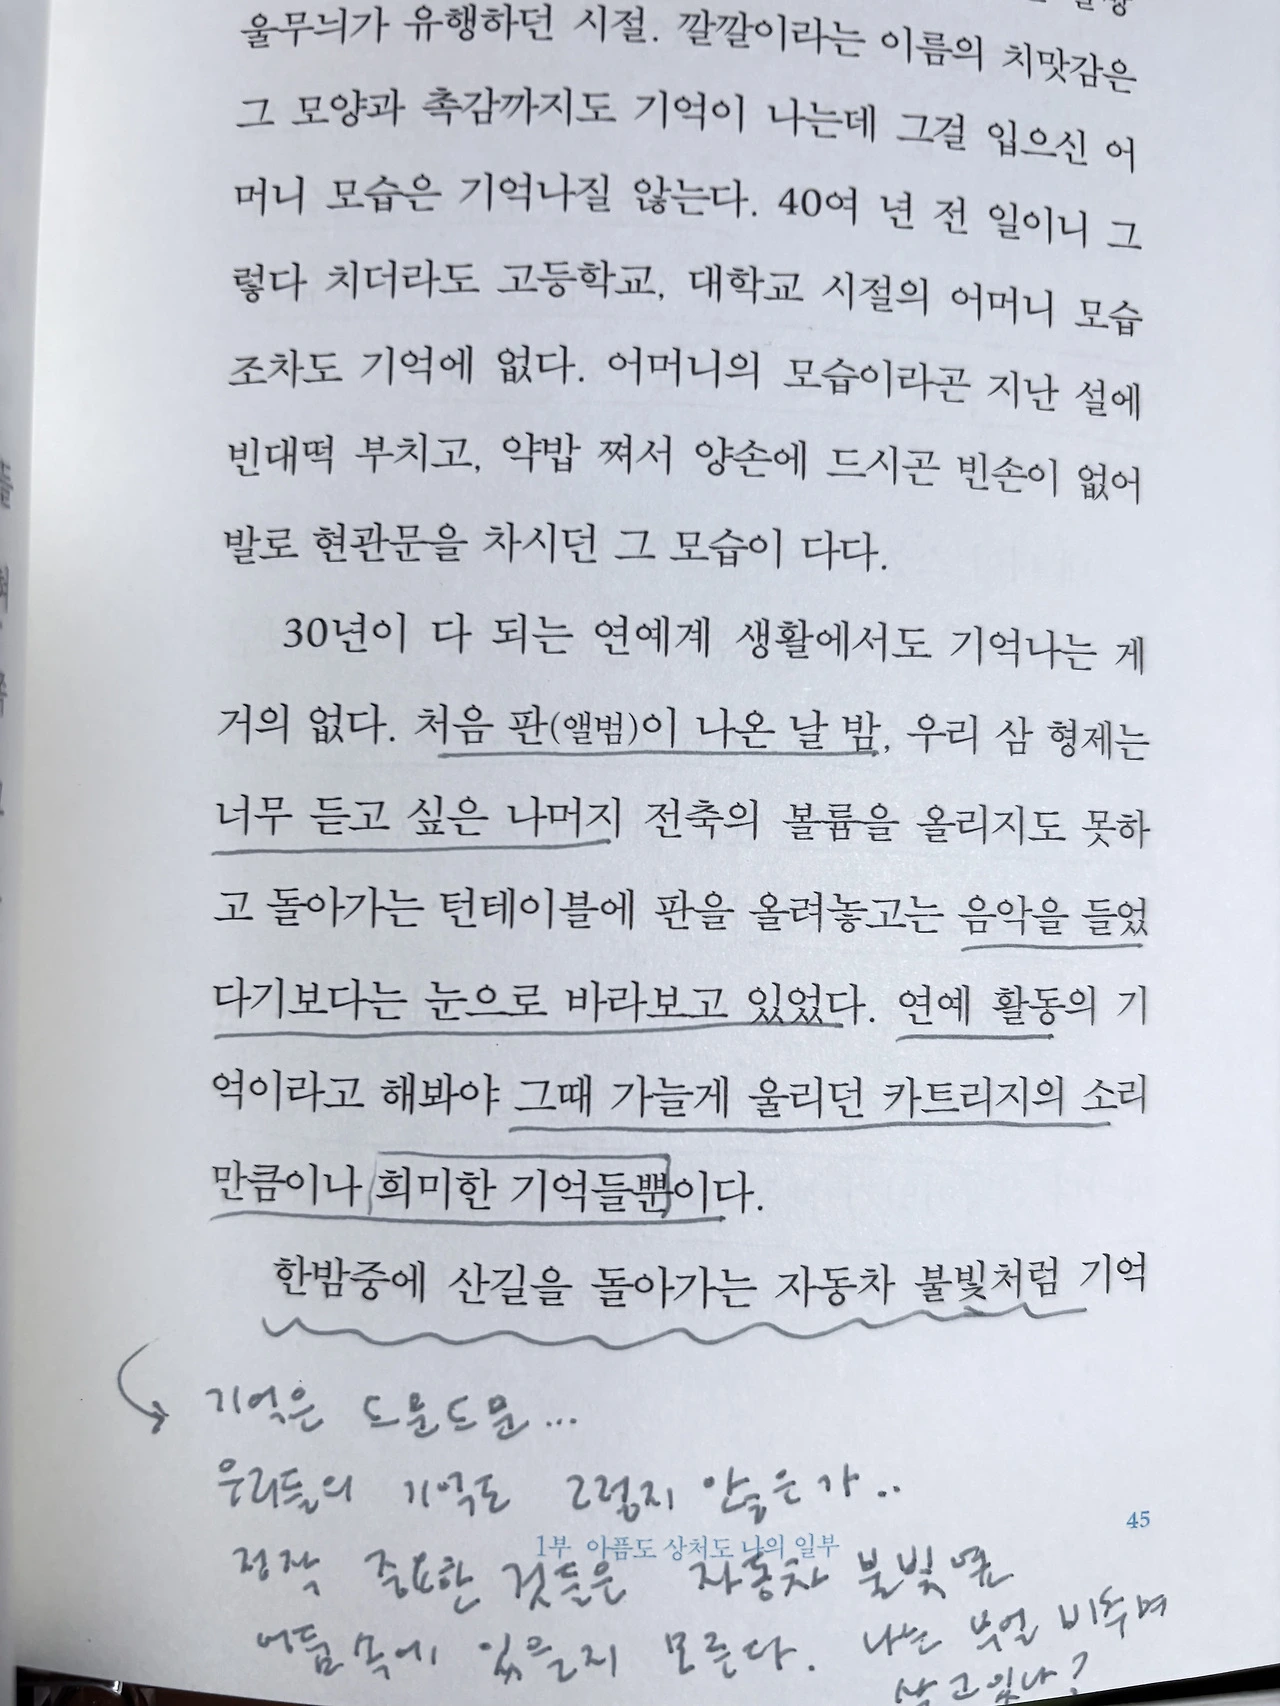 울무늬가 유행하던 시절. 깔깔이라는 이름의 치맛감은
그 모양과 촉감까지도 기억이 나는데 그걸 입으신 어
머니 모습은 기억나질 않는다. 40여 년 전 일이니 그
렇다 치더라도 고등학교, 대학교 시절의 어머니 모습
조차도 기억에 없다. 어머니의 모습이라곤 지난 설에
빈대떡 부치고, 약밥 쪄서 양손에 드시곤 빈손이 없어
발로 현관문을 차시던 그 모습이 다다.
30년이 다 되는 연예계 생활에서도 기억나는 게
거의 없다. 처음 판(앨범)이 나온 날 밤, 우리 삼 형제는
너무 듣고 싶은 나머지 전축의 볼륨을 올리지도 못하
고 돌아가는 턴테이블에 판을 올려놓고는 음악을 들었
다기보다는 눈으로 바라보고 있었다. 연예 활동의 기
억이라고 해봐야 그때 가늘게 울리던 카트리지의 소리
만큼이나 희미한 기억들뿐이다.
한밤중에 산길을 돌아가는 자동차 불빛처럼 기억
기억은 드문드문...
우리들의 기억도 그렇지 않은가..
45
1부 아픔도 상처도 나의 일부
정작 중요한 것들은 자동차 불빛
어둠 속에 있을지 모른다. 나는 무얼 비추며
살고있나?